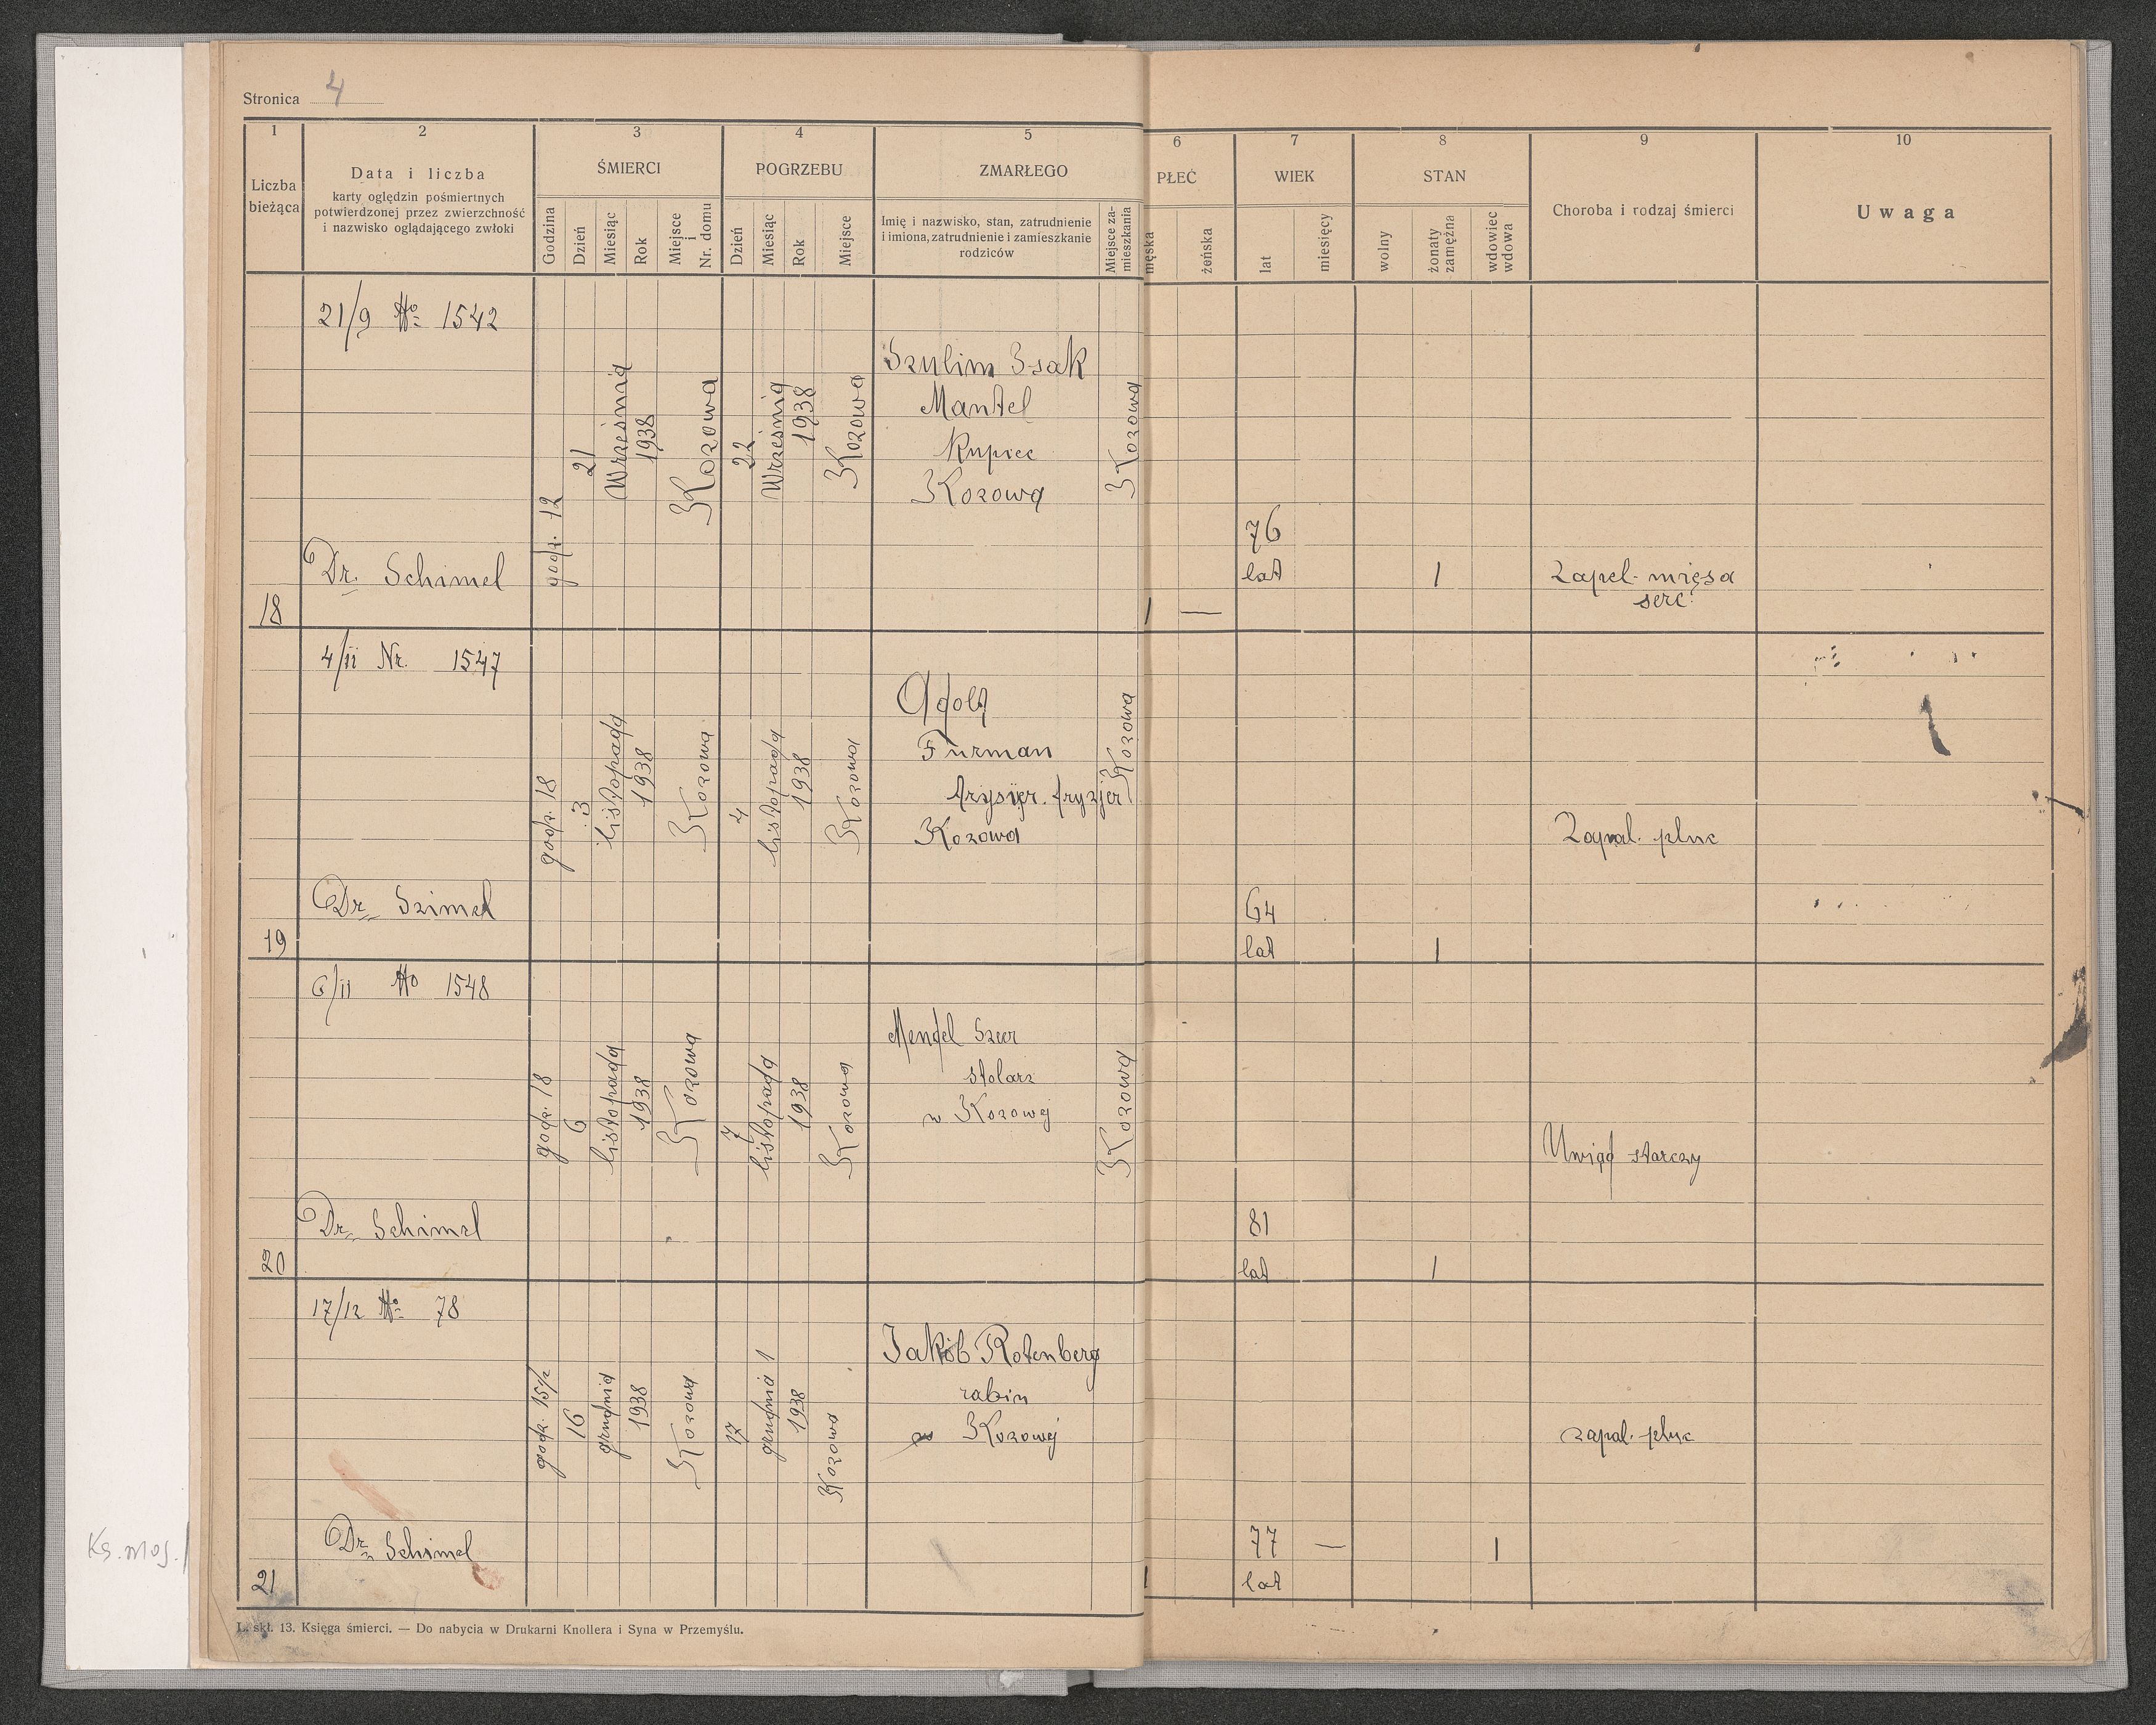 Stronica 4
1 2 3 4 5 6 7 8 9 10
Liczba bieżąca
Data i liczba
karty oględzin pośmiertnych
potwierdzonej przez zwierzchność
i nazwisko oglądającego zwłoki
ŚMIERCI
Godzina
Dzień
Miesiąc
Rok
Miejsce i Nr. domu
POGRZEBU
Dzień
Miesiąc
Rok
Miejsce
ZMARŁEGO
Imię i nazwisko, stan, zatrudnienie
i imiona, zatrudnienie i zamieszkanie
rodziców
Miejsce za-
mieszkania
PŁEĆ
męska
żeńska
WIEK
lat
miesięcy
STAN
wolny
żonaty
zamężna
wdowiec
wdowa
Choroba i rodzaj śmierci
Uwaga
21/9 No 1542
Dr. Schimel
18
godz. 12
21
Września
1938
Kozowa
22
Września
1938
Kozowa
Szulim Isak
Mantel
Kupiec
Kozowa
Kozowa
1 —
76
lat
1
Zapal. mięsa
serc.
4/11 Nr. 1547
Dr. Szimel
19
godz. 18
3
listopada
1938
Kozowa
4
listopada
1938
Kozowa
Adolf
Furman
fryzjer
Kozowa
Kozowa
64
lat
1
Zapal. płuc
6/11 No 1548
Dr. Schimel
20
godz. 18
6
listopada
1938
Kozowa
7
listopada
1938
Kozowa
Mendel Szer
stolarz
w Kozowej
Kozowa
81
lat
1
Uwiąd starczy
17/12 No 78
Dr. Schimel
21
godz. 15½
16
grudnia
1938
Kozowa
17
grudnia 1
1938
Kozowa
Jakób Rotenberg
rabin
w Kozowej
1
77 —
lat
1
zapal. płuc
Ks. moj. /
L. skł. 13. Księga śmierci. — Do nabycia w Drukarni Knollera i Syna w Przemyślu.